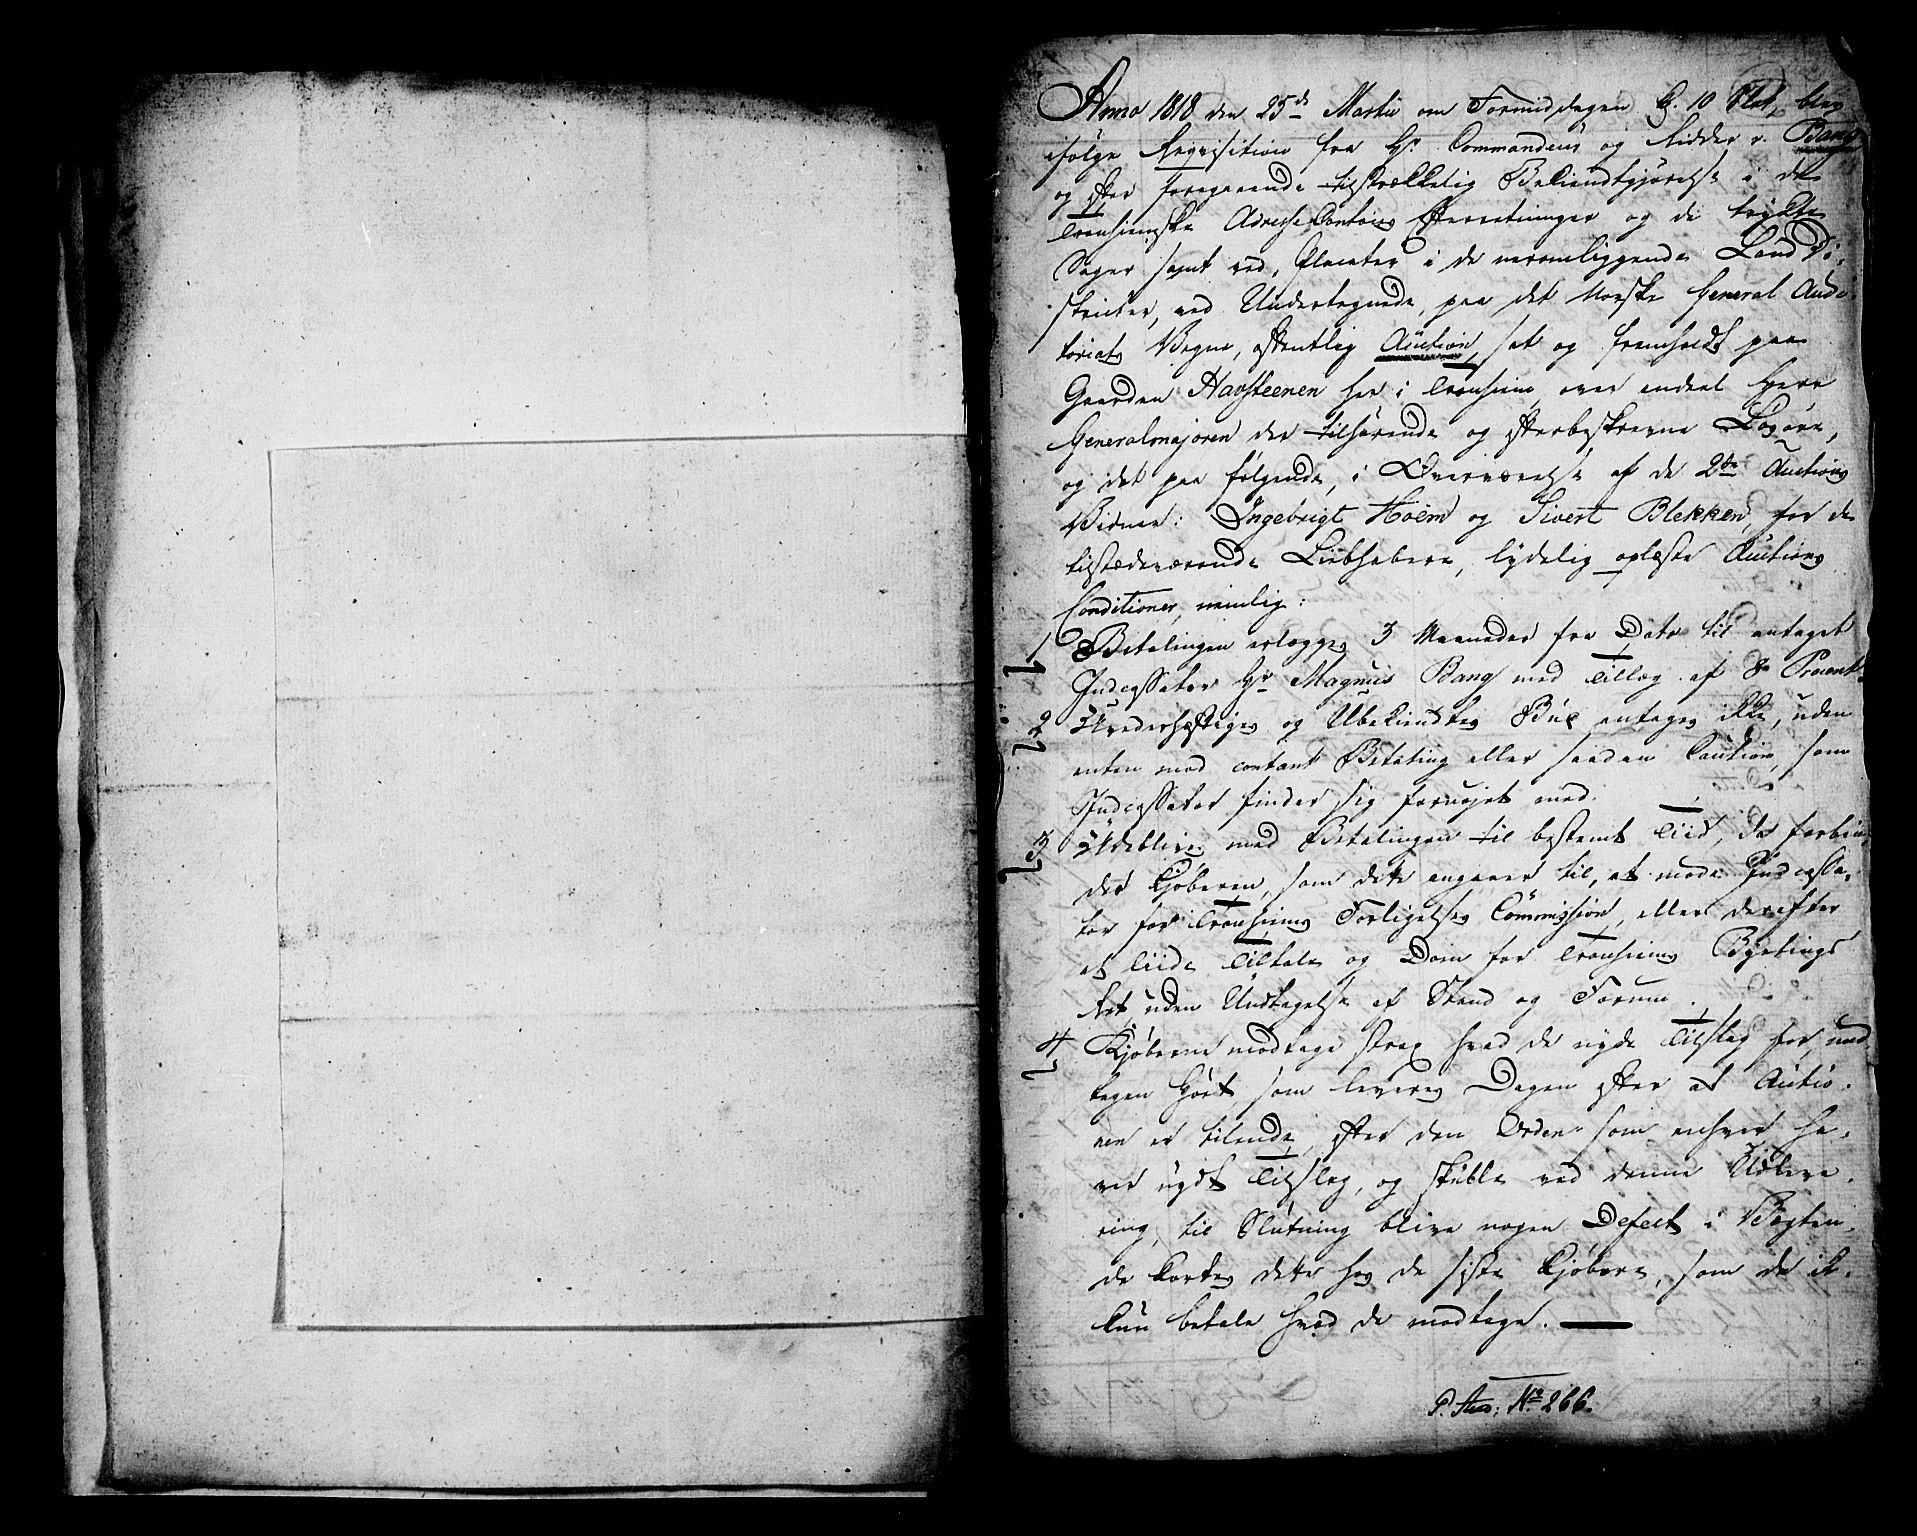 Anno 1818 den 25de Martii om Formiddagen Kl. 10 Slet, blev
ifølge Requisition fra Hr. Commandeur og Ridder v. Bang
og efter foregaaende tilstrækkelig Bekiendtgjørelse i det
Tronhiemske Adresse Contoirs Efterretninger og de trykte
Sager samt ved Placater i de nærmliggende Land Di-
stricter, ved Undertegnede, paa det Norske General Audi-
toriats Vegne, offentlig Auction, sat og fremholdt paa
Gaarden Havsteenen her i Tronhiem over endeel Herr
Generalmajoren der tilhørende og efterbeskrevne Løsøre,
og det paa følgende, i Overværelse af de 2de Auctions
Vidner: Ingebrigt Hoëm og Sivert Blekken, for de
tilstædeværende Liebhabere, lydelig oplæste Auctions
Conditioner, nemlig:
1 Betalingen erlægges 3 Maaneder fra Dato til antaget
Indcassator Hr. Magnus Bang med Tillæg af 8 Procent.
2 Uvederhæftiges og Ubekiendtes Bud antages ikke, uden
enten mod contant Betaling eller saadan Caution, som
Indcassator finder sig fornøjet med.
3 Udeblive med Betalingen til bestemt Tiid, da forbin-
der Kjøberen, som dette angaaer til, at møde Indcassa-
tor for Tronhiems Forligelses Commission, eller derefter
at liide Tiltale og Dom for Tronhiems Byetings
Ret uden Undtagelse af Stand og Forum.
4 Kjøberne modtage strax hvad de nyde Tilslag for, und-
tagen Høet, som leveres Dagen efter at Auctio-
nen er tilende, efter den Orden som enhver ha-
ver nydt Tilslag, og skulle ved denne Udleve-
ring, til Slutning blive nogen Defect i Vægten,
da kortes dette hos de siste Kjøbere, som da ik-
kun betale hvad de modtage.
No 266.